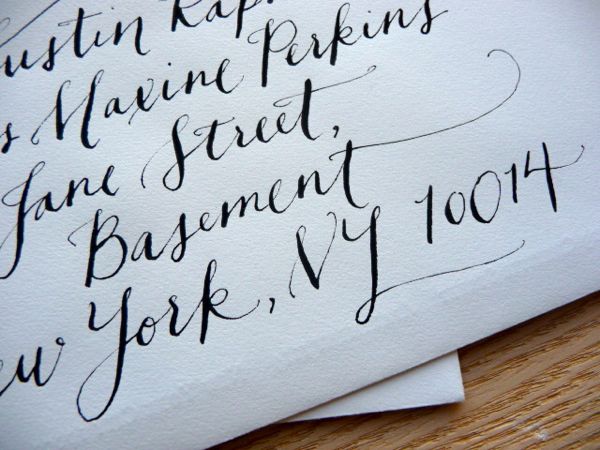 ustin Rap
s Maxine Perkins
Jane Street,
Basement
ew York, NY 10014